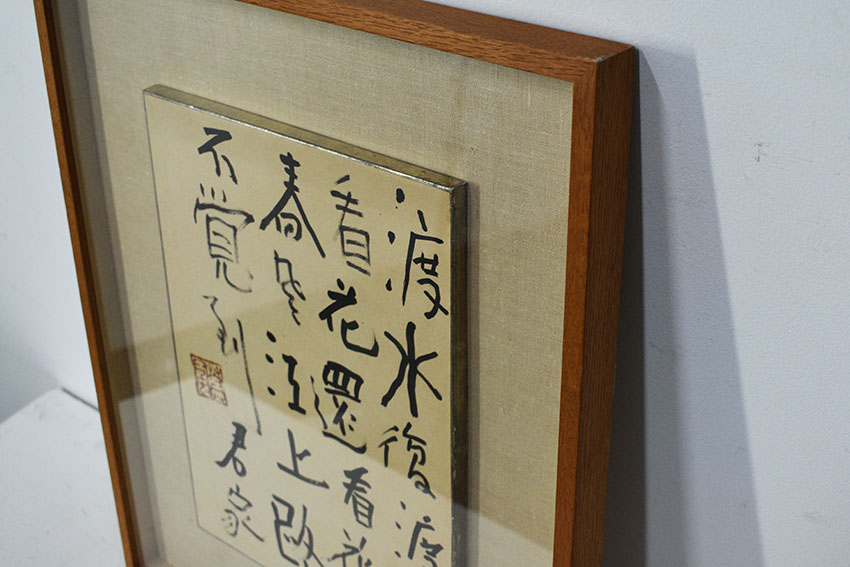 渡水復渡
看花還看花
春風江上路
不覺到君家